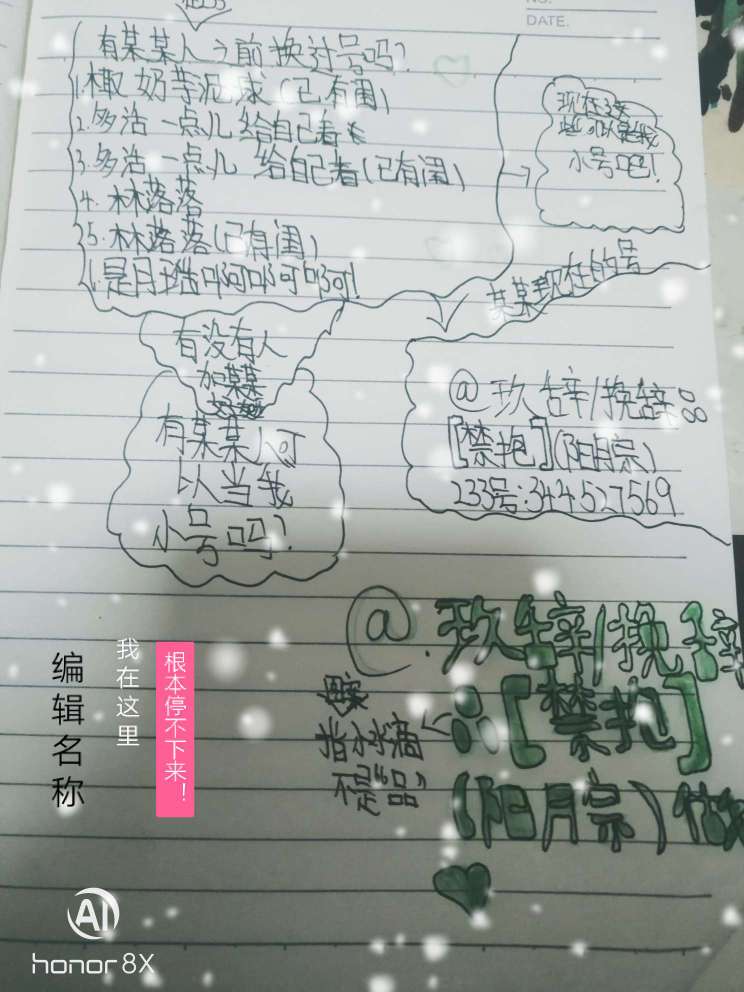 NO.
DATE.
有某某人之前换过号吗?
1.橄奶芋泥球(已有闺)
2.多活一点儿给自己看
3.多活一点儿 给自己看(已有闺)
4.林落落
5.林落落(已有闺)
是月瑶啊啊啊!
现在这
些可以是我
小号吧!
某某现在的号
@玖辞/挽辞
[禁抱](阳月宗)
233号:344527569
有没有人
加某某
有某某人可
以当我
小号吗?
@.玖辞/挽辞
[禁抱]
(阳月宗)
指水滴
不是“品”
编辑名称
我在这里
根本停不下来!
AI
honor 8X